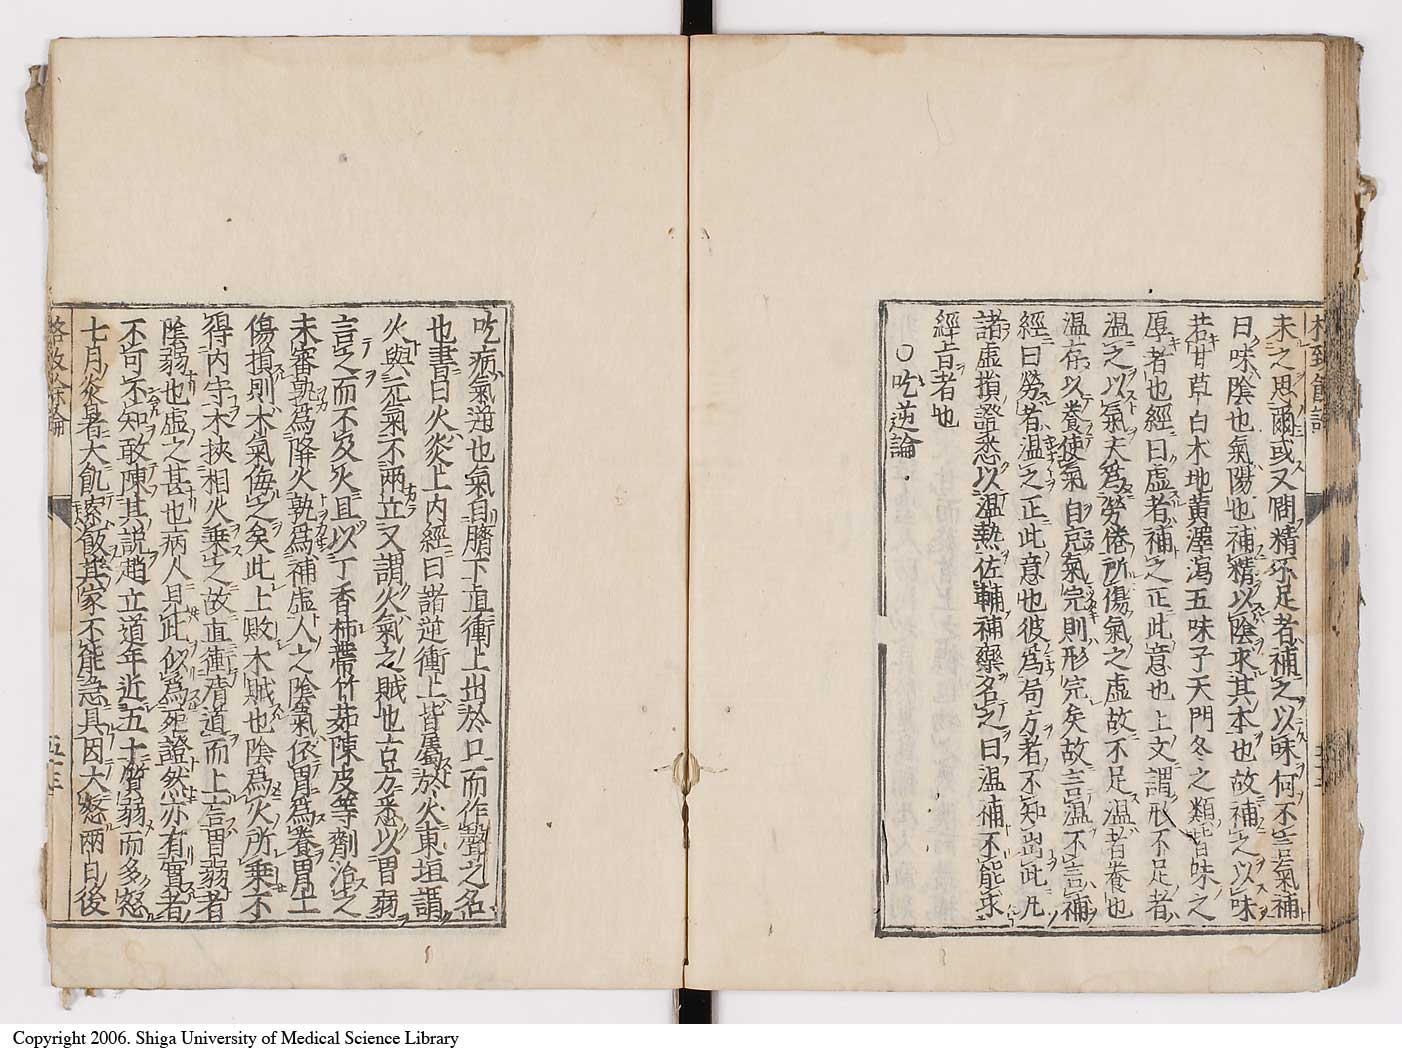 未之思爾或又問精不足者補之以味何不言氣補
曰味陰也氣陽也補精以陰求其本也故補之以味
若甘草白木地黄澤瀉五味子天門冬之類皆味之
厚者也經曰虚者補之正此意也上文謂形不足者
温之以氣夫爲勞倦所傷氣之虚故不足温者養也
温存以養使氣自充氣完則形完矣故言温不言補
經曰勞者温之正此意也彼爲局方者不知出此凡
諸虚損證悉以温熱佐輔補藥名之曰温補不能求
經旨者也
○吃逆論
吃病氣逆也氣自臍下直衝上出於口而作聲之名
也書曰火炎上内經曰諸逆衝上皆屬於火東垣謂
火與元氣不兩立又謂火氣之賊也古方悉以胃弱
言之而不及火且以丁香柿帶竹茹陳皮等劑治之
未審孰爲降火孰爲補虚人之陰氣依胃爲養胃土
傷損則木氣侮之矣此上敗木賊也陰爲火所乘不
得内守木挾相火乘之故直衝清道而上言胃弱者
陰弱也虚之甚也病人見此似爲死證然亦有實者
不可不知敢陳其説趙立道年近五十質弱而多怒
七月炎暑大飢索飯其家不能急具因大怒兩日後
格致餘論
Copyright 2006. Shiga University of Medical Science Library